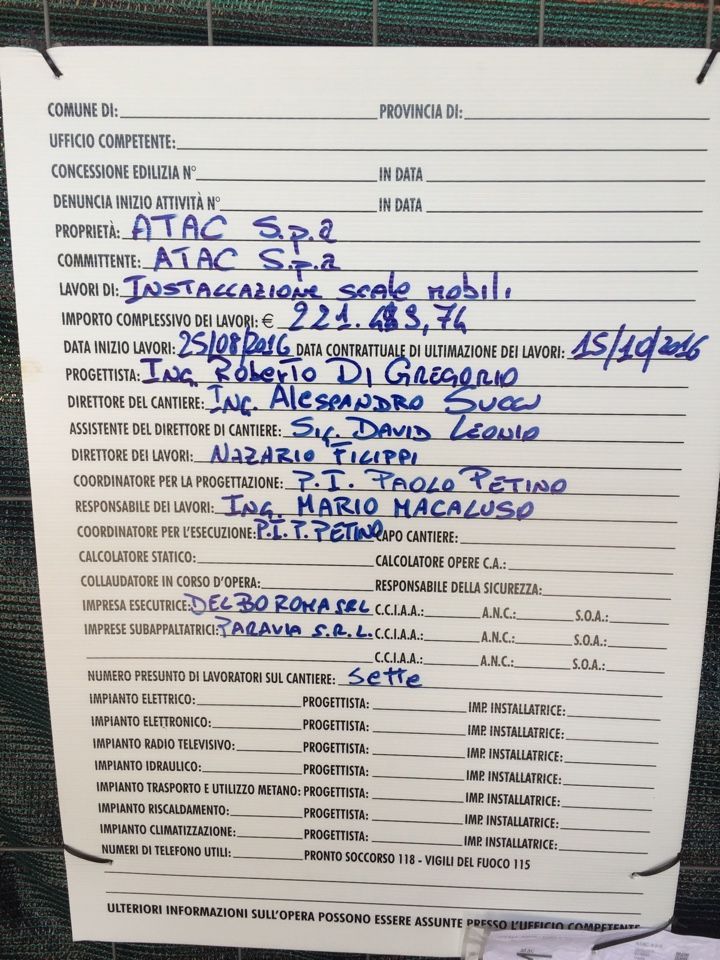 COMUNE DI: PROVINCIA DI:
UFFICIO COMPETENTE:
CONCESSIONE EDILIZIA N° IN DATA
DENUNCIA INIZIO ATTIVITÀ N° IN DATA
PROPRIETÀ: ATAC S.p.a
COMMITTENTE: ATAC S.p.a
LAVORI DI: INSTALLAZIONE scale mobili
IMPORTO COMPLESSIVO DEI LAVORI: €
DATA INIZIO LAVORI: 25/08/2016 DATA CONTRATTUALE DI ULTIMAZIONE DEI LAVORI: 15/10/2016
PROGETTISTA: ING. ROBERTO DI GREGORIO
DIRETTORE DEL CANTIERE: ING. ALESSANDRO
ASSISTENTE DEL DIRETTORE DI CANTIERE: SIG. DAVID LEONIO
DIRETTORE DEI LAVORI: NAZARIO FILIPPI
COORDINATORE PER LA PROGETTAZIONE: P.I. PAOLO PETINO
RESPONSABILE DEI LAVORI: ING. MARIO MACALUSO
COORDINATORE PER L'ESECUZIONE: P.I. P. PETINO CAPO CANTIERE:
CALCOLATORE STATICO: CALCOLATORE OPERE C.A.:
COLLAUDATORE IN CORSO D'OPERA: RESPONSABILE DELLA SICUREZZA:
IMPRESA ESECUTRICE: DEL BO ROMA SRL C.C.I.A.A.: A.N.C.: S.O.A.:
IMPRESE SUBAPPALTATRICI: PARAVIA S.R.L. C.C.I.A.A.: A.N.C.: S.O.A.:
C.C.I.A.A.: A.N.C.: S.O.A.:
NUMERO PRESUNTO DI LAVORATORI SUL CANTIERE: Sette
IMPIANTO ELETTRICO: PROGETTISTA: IMP. INSTALLATRICE:
IMPIANTO ELETTRONICO: PROGETTISTA: IMP. INSTALLATRICE:
IMPIANTO RADIO TELEVISIVO: PROGETTISTA: IMP. INSTALLATRICE:
IMPIANTO IDRAULICO: PROGETTISTA: IMP. INSTALLATRICE:
IMPIANTO TRASPORTO E UTILIZZO METANO: PROGETTISTA: IMP. INSTALLATRICE:
IMPIANTO RISCALDAMENTO: PROGETTISTA: IMP. INSTALLATRICE:
IMPIANTO CLIMATIZZAZIONE: PROGETTISTA: IMP. INSTALLATRICE:
NUMERI DI TELEFONO UTILI: PRONTO SOCCORSO 118 - VIGILI DEL FUOCO 115
ULTERIORI INFORMAZIONI SULL'OPERA POSSONO ESSERE ASSUNTE PRESSO L'UFFICIO COMPETENTE